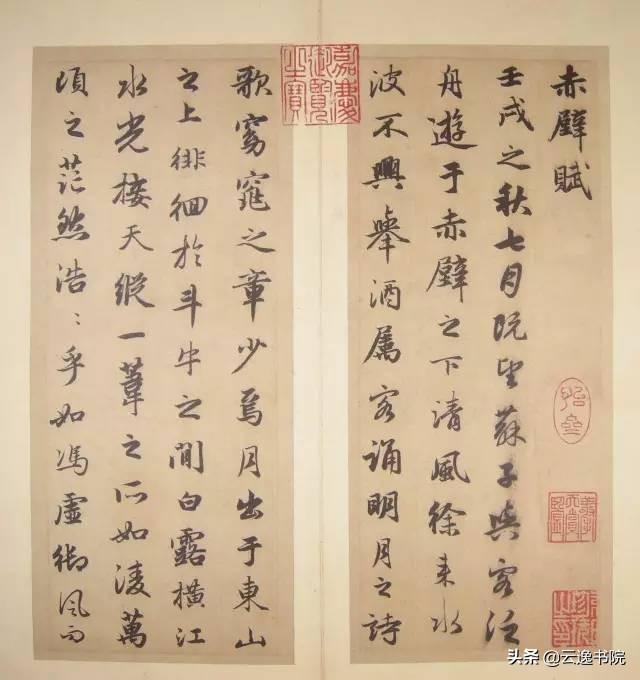 赤壁賦
壬戌之秋七月既望蘇子與客泛
舟遊于赤壁之下清風徐来水
波不興舉酒屬客誦明月之詩
歌窈窕之章少焉月出于東山
之上徘徊於斗牛之間白露橫江
水光接天縱一葦之所如凌萬
頃之茫然浩〻乎如馮虛御風而
嘉慶御覽之寶
头条 @云逸书院